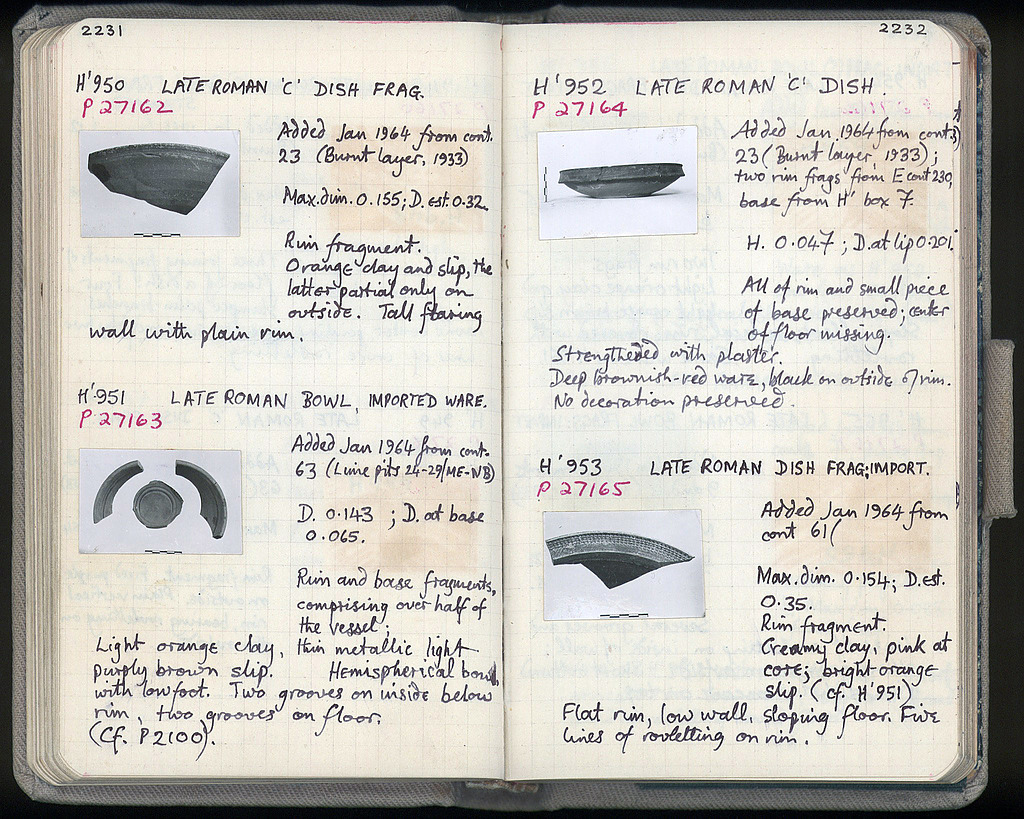 2231
H'950 LATE ROMAN 'C' DISH FRAG.
P 27162
Added Jan 1964 from cont.
23 (Burnt layer, 1933)
Max. dim. 0.155; D. est. 0.32
Rim fragment.
Orange clay and slip, the
latter partial only on
outside. Tall flaring
wall with plain rim.
H'951 LATE ROMAN BOWL, IMPORTED WARE.
P 27163
Added Jan 1964 from cont.
63 (Lime pits 24-29/ΜΕ-ΝΒ)
D. 0.143 ; D. at base
0.065.
Rim and base fragments,
comprising over half of
the vessel;
Light orange clay, thin metallic light
purply brown slip. Hemispherical bowl
with low foot. Two grooves on inside below
rim, two grooves on floor.
(Cf. P 2100).
2232
H'952 LATE ROMAN 'C' DISH.
P 27164
Added Jan 1964 from cont
23 (Burnt layer, 1933);
two rim frags from E cont 230,
base from H' box 7.
H. 0.047 ; D. at lip 0.201.
All of rim and small piece
of base preserved; center
of floor missing.
Strengthened with plaster.
Deep brownish-red ware, black on outside of rim.
No decoration preserved.
H'953 LATE ROMAN DISH FRAG; IMPORT.
P 27165
Added Jan 1964 from
cont 61 (
Max. dim. 0.154; D. est.
0.35.
Rim fragment.
Creamy clay, pink at
core; bright orange
slip. (cf. H'951)
Flat rim, low wall, sloping floor. Five
lines of rouletting on rim.